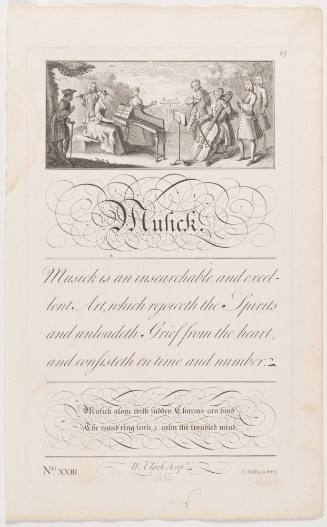 65
Musick.
Musick is an insearchable and excel-
lent Art, which rejoiceth the Spirits
and unloadeth Grief from the heart,
and consisteth in time and number.
Musick alone with sudden Charms can bind
The wand'ring sense, & calm the troubled mind.
No. XXIII. W. Clark Scrip. G. Bickham Sculp.